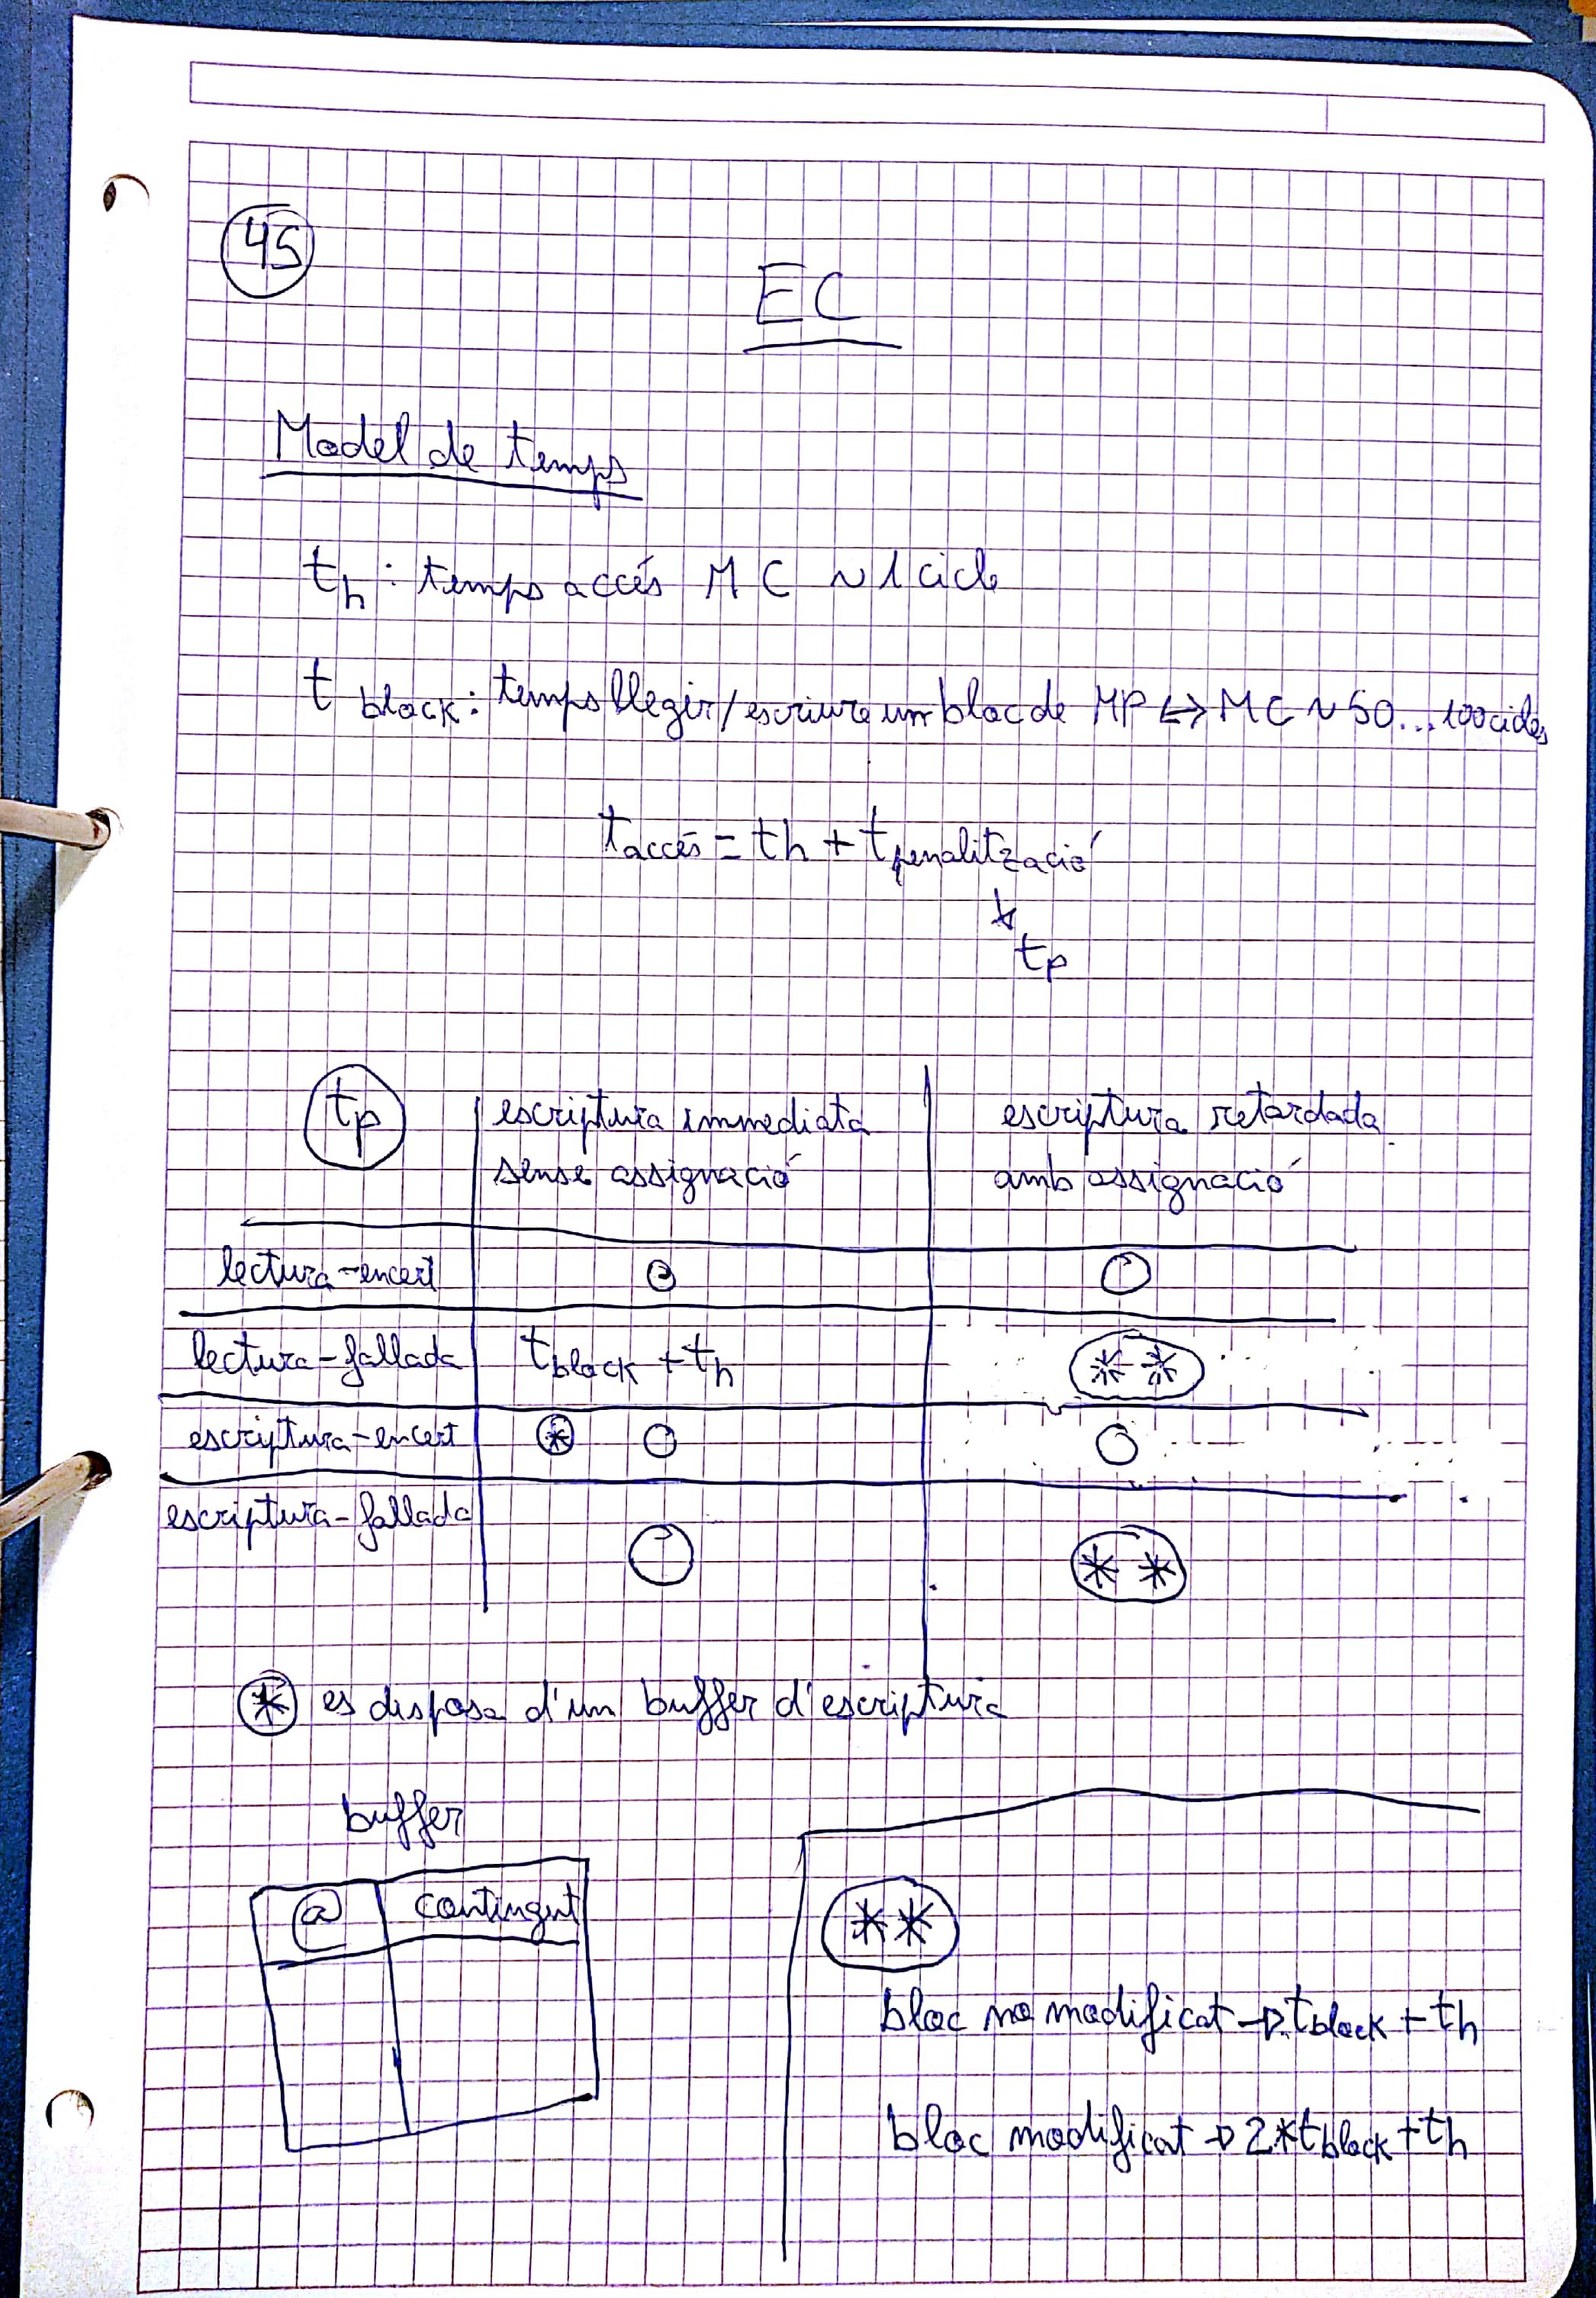 45
EC
Model de temps
th : temps accés MC ~ 1 cicle
t block : temps llegir/escriure un bloc de MP ↔ MC ~ 50...100 cicles
taccés = th + tpenalització
↓
tp
tp escriptura immediata escriptura retardada
sense assignació amb assignació
lectura-encert 0 0
lectura-fallada tblock + th **
escriptura-encert * 0 0
escriptura-fallada 0 **
* es disposa d'un buffer d'escriptura
buffer
@ contingut
**
bloc no modificat → tblock + th
bloc modificat → 2*tblock + th